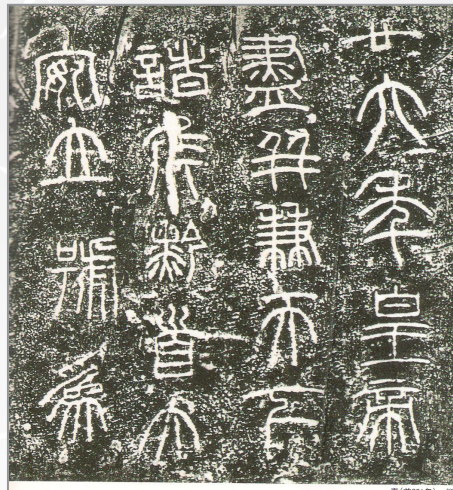 廿六年皇帝
盡并兼天下
諸矦黔首大
安立號爲